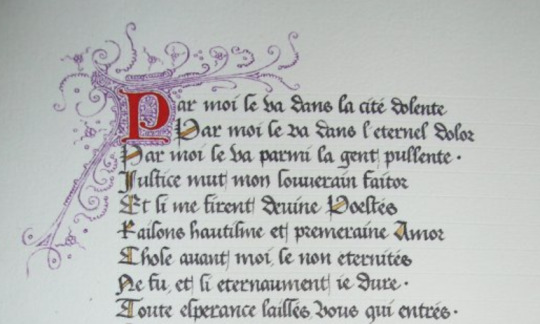 Par moi se va dans la cité dolente
Par moi se va dans l'eternel dolor
Par moi se va parmi la gent pullente.
Justice mut mon souverain faitor
Et si me firent devine Poestés
Raisons hautisme et premeraine Amor
Chose avant moi, se non eternités
Ne fu, et si eternaument ie dure.
Toute esperance laissés, Vous qui entrés.